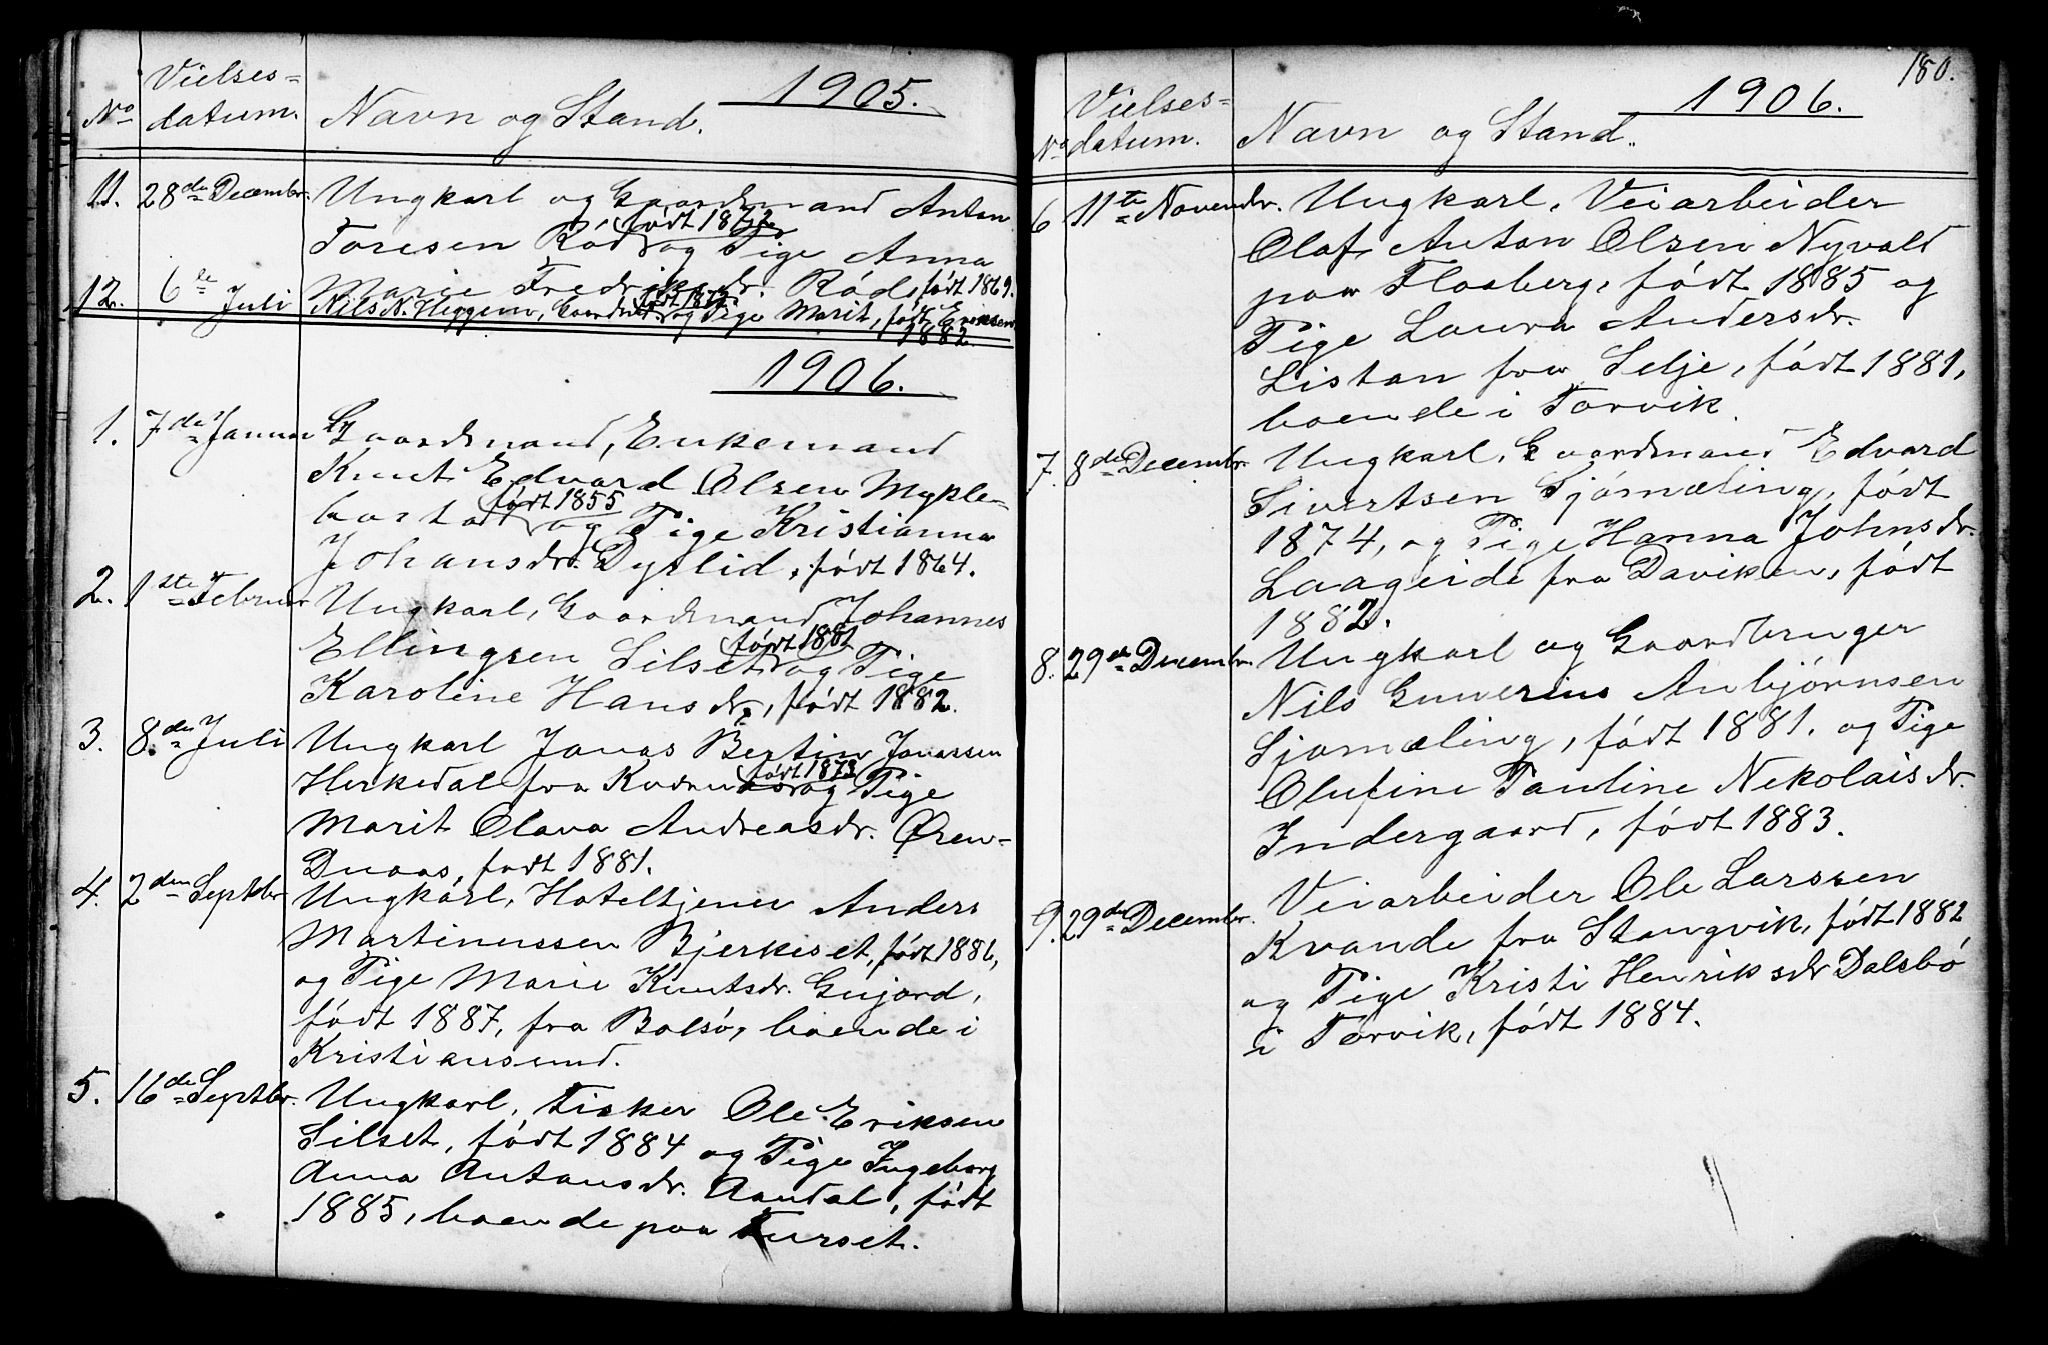 1905.
Vielses=
No datum. Navn og Stand.
11. 28de Decembr. Ungkarl og Gaardmand Anton
født 1872
Toresen Rød og Pige Anna
Marie Fredriksdr. Rød, født 1869.
12. 6te Juli Nils N. Heggem, Gaardmd. født 1872. og Pige Marit, født Eriksen
1882.
1906.
1. 7de Januar Gaardmand, Enkemand
Knut Edvard Olsen Mykle-
født 1855
bostad og Pige Kristianna
Johansdr. Dyrlid, født 1864.
2. 1ste Februar Ungkarl, Gaardmand Johannes
født 1881
Ellingsen Silset og Pige
Karoline Hansdr., født 1882.
3. 8de Juli Ungkarl Jonas Bertin Jonassen
født 1873
Herkedal fra og Pige
Marit Olava Andreasdr. Øren-
født 1881.
4. 2den Septbr. Ungkarl, Hoteltjener Anders
Martinussen Bjerkeset, født 1886,
og Pige Marie Knutsdr. Gujord,
født 1887, fra Bolsø, boende i
Kristiansund.
5. 16de Septbr. Ungkarl, Fisker Ole Eriksen
Silset, født 1884 og Pige Ingeborg
Anna Antonsdr. Aandal, født
1885, boende paa Furset.
180.
1906.
Vielses=
No datum. Navn og Stand.
6 11te Novembr. Ungkarl, Veiarbeider
Olaf Anton Olsen Nyvold
paa Flaaberg, født 1885 og
Pige Laura Andersdr.
Listan fra Selje, født 1881,
boende i Torvik.
7. 8de Decembr. Ungkarl, Gaardmand Edvard
Sivertsen Sjømæling, født
1874, og Pige Hanna Johnsdr.
Laageide fra Daviken, født
1882.
8. 29de Decembr. Ungkarl og Gaardbruger
Nils Gunerius Anbjørnsen
Sjømæling, født 1881. og Pige
Olufine Pauline Nekolaisdr.
Indergaard, født 1883.
9. 29de Decembr. Veiarbeider Ole Larssen
Kvande fra Stangvik, født 1882
og Pige Kristi Henriksdr Dalsbø
i Torvik, født 1884.